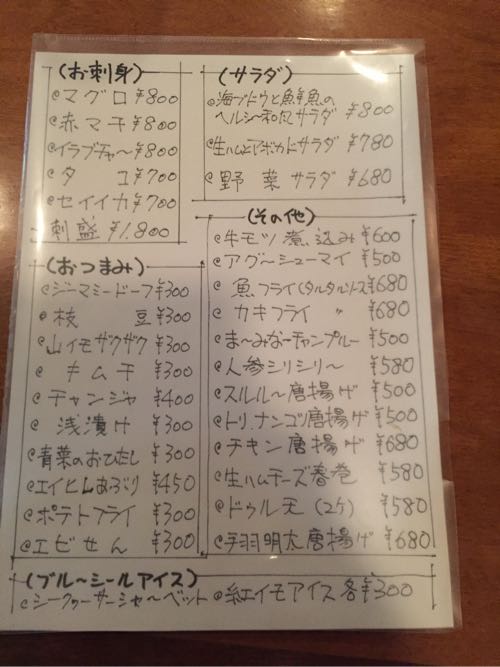 (お刺身)
@マグロ ¥800
@赤マチ ¥800
@イラブチャ〜 ¥800
@タコ ¥700
@セイイカ ¥700
刺盛 ¥1.800
(おつまみ)
@ジーマミードーフ ¥300
@枝豆 ¥300
@山イモザクザク ¥300
@キムチ ¥300
@チャンジャ ¥400
@浅漬け ¥300
@青菜のおひたし ¥300
@エイヒレあぶり ¥450
@ポテトフライ ¥300
@エビせん ¥300
(サラダ)
@海ブドウと鮮魚の
ヘルシー和風サラダ ¥800
@生ハムとアボカドサラダ ¥780
@野菜サラダ ¥680
(その他)
@牛モツ煮込み ¥600
@アグ〜シューマイ ¥500
@魚フライ(タルタルソース) ¥680
@カキフライ 〃 ¥680
@ま〜みな〜チャンプルー ¥500
@人参シリシリ〜 ¥580
@スルル〜唐揚げ ¥500
@トリ,ナンコツ唐揚げ ¥500
@チキン唐揚げ ¥680
@生ハムチーズ春巻 ¥580
@ドゥル天(2ケ) ¥580
@手羽明太唐揚げ ¥680
(ブル〜シールアイス)
@シークヮーサーシャ〜ベット @紅イモアイス 各¥300